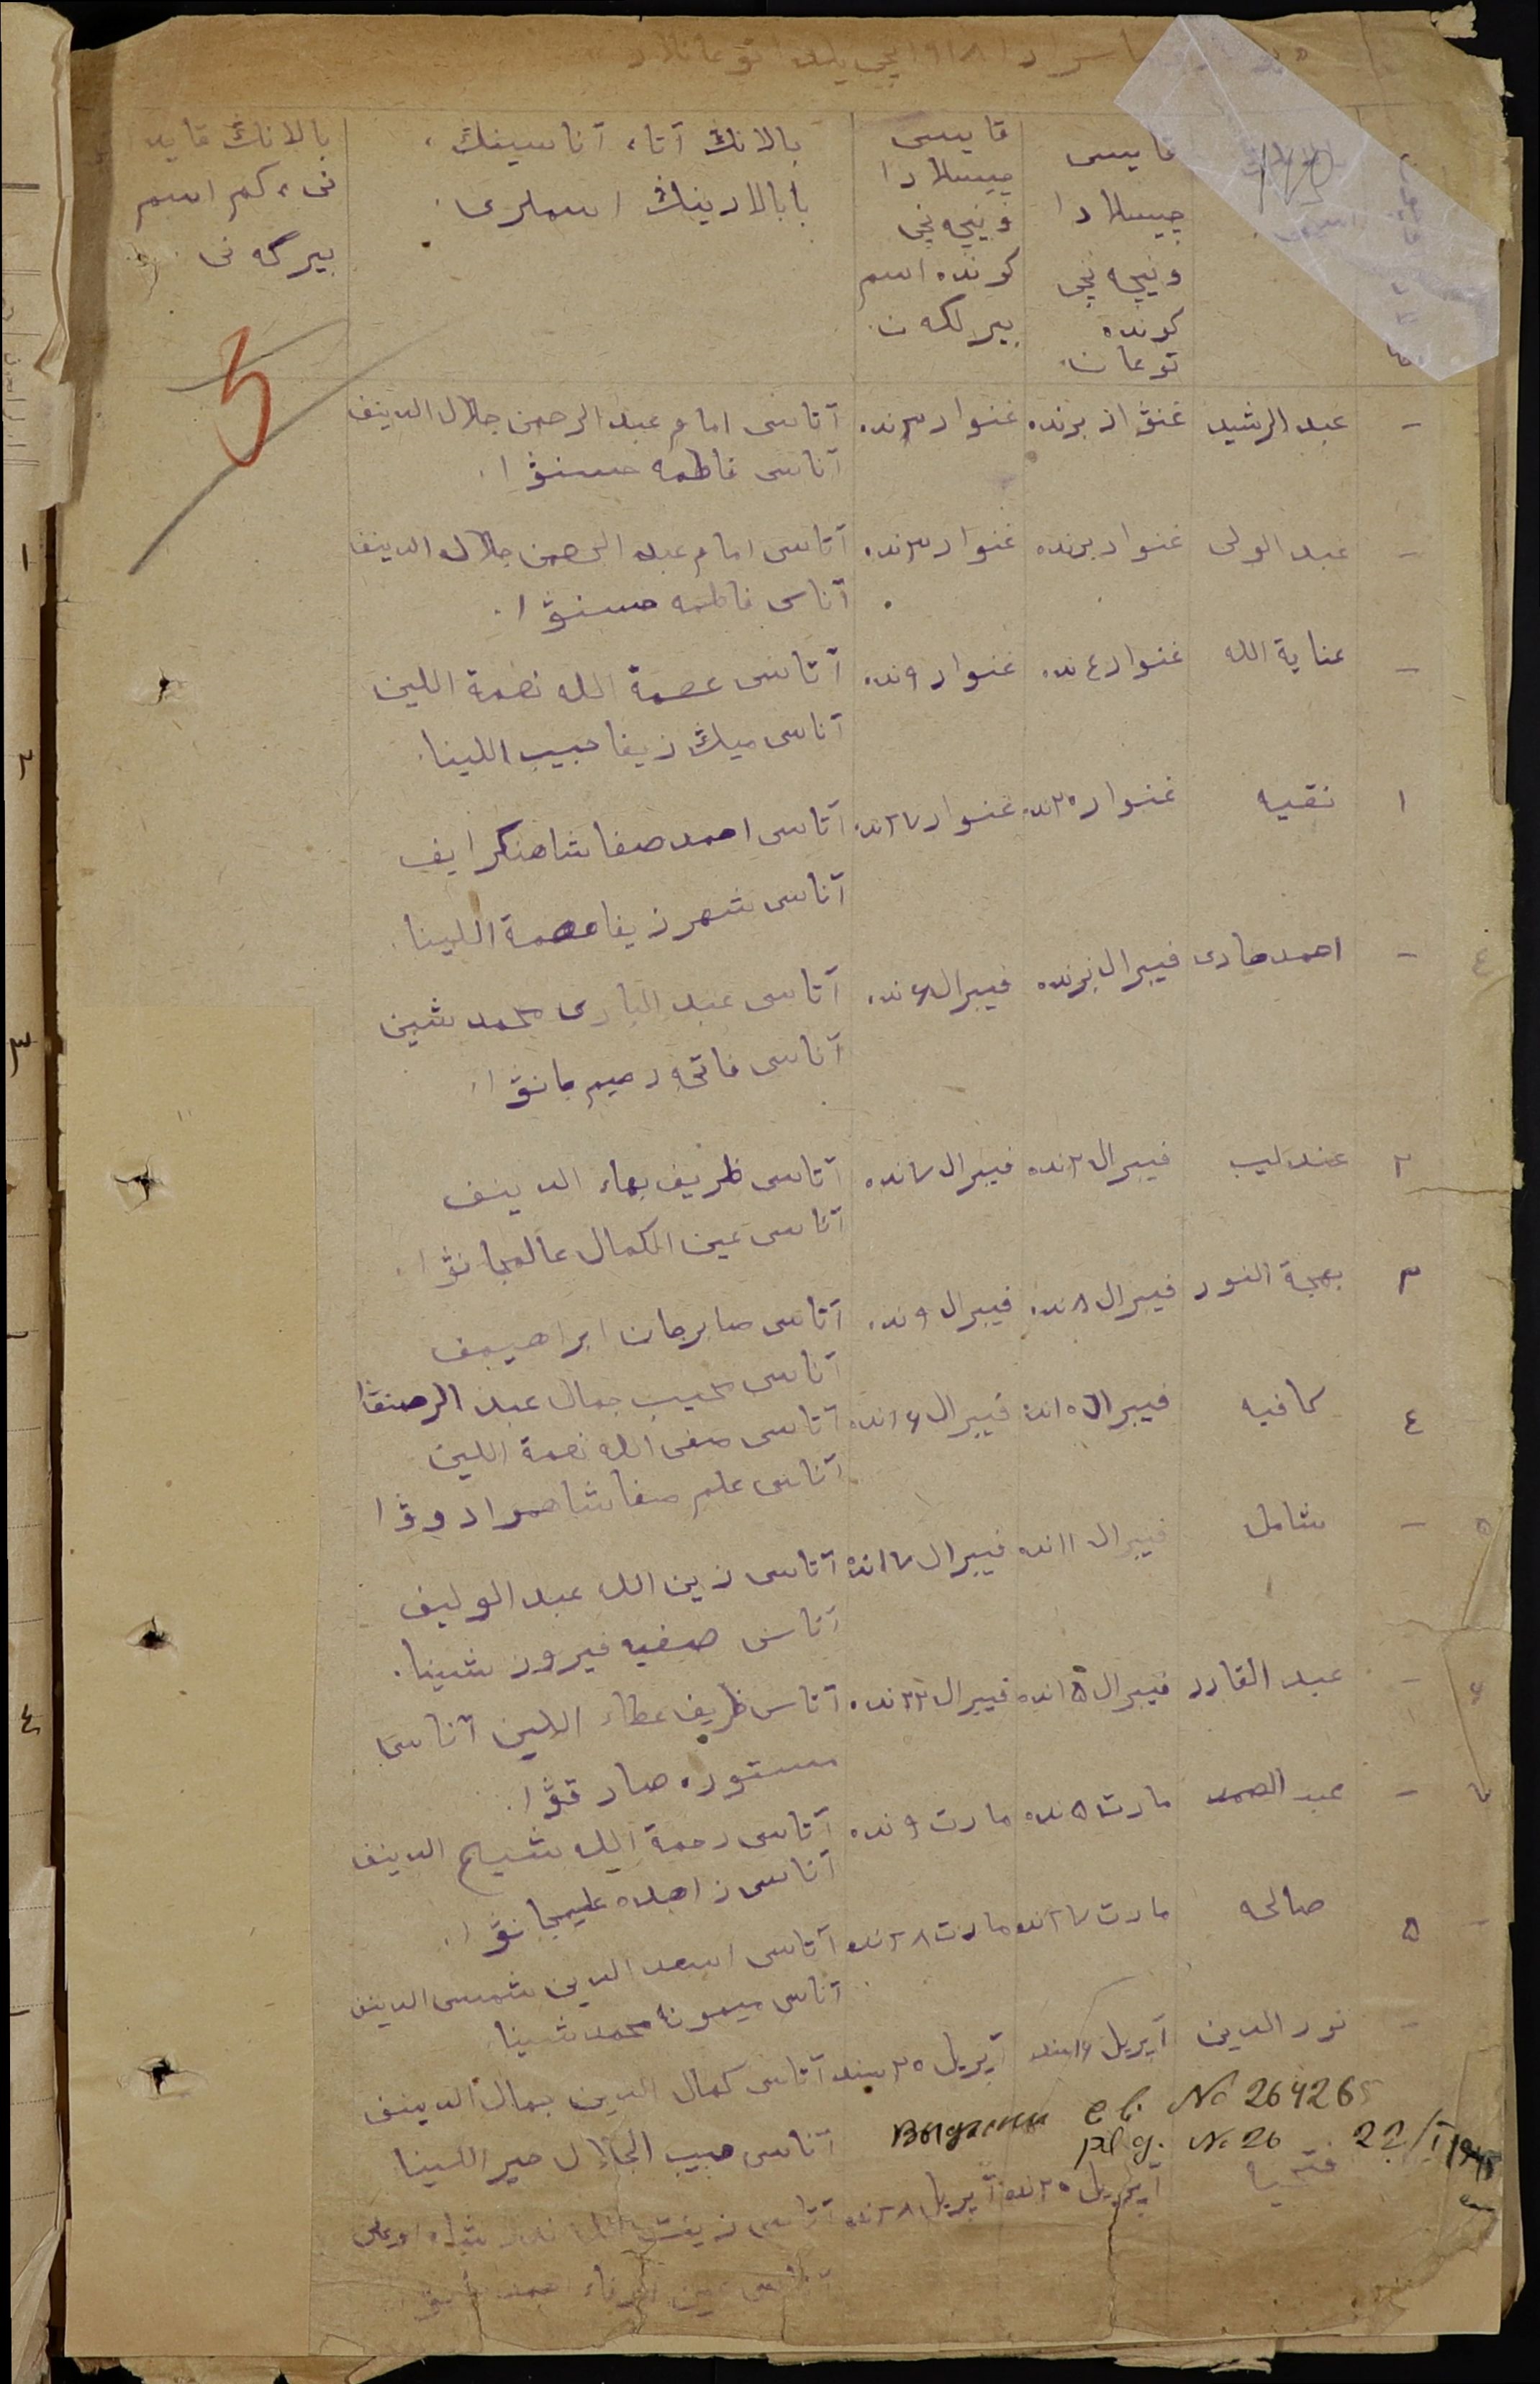 ۱۹۱۸ نچی یلده توغانلار
قایسی چیسلادا ونیچه نچی کونده توغان.
قایسی چیسلادا ونیچه نچی کونده اسم بیرلگه ن.
بالانڭ آتا، آناسینڭ، بابالارینڭ اسملری.
بالانڭ قاید نی، کم اسم بیرگه نی
5
- عبد الرشید غنوار برنده غنوار ۳نده. آتاسی امام عبد الرحمن جلال الدینف
آناسی فاطمه حسنوڤا.
- عبد الولی غنوار برنده غنوار ۳نده. آتاسی امام عبد الرحمن جلال الدینف
آناسی فاطمه حسنوڤا.
- عنایة الله غنوار ٤نده. غنوار ۹نده. آتاسی عصمة الله نعمة اللین
آناسی میڭ زیفا حبیب اللینا.
۱ نقیه غنوار ۲۵نده. غنوار ۲۷نده. آتاسی احمد صفا شاهنکرایف
آناسی شهر زیفا عصمة اللینا.
٤ - احمد هادی فیبرال برنده فیبرال ۶نده. آتاسی عبد الباری محمد شین
آناسی فاتحه رحیم جانوڤا.
۲ عندلیب فیبرال ۲نده فیبرال ۷نده آتاسی ظریف بهاء الدینف
آناسی عین الکمال عالمجانوڤا.
۳ بهجة النور فیبرال ۸نده. فیبرال ۹نده. آتاسی صابرجان ابراهیمف
آناسی محیب جمال عبد الرحمنوڤا
٤ کافیه فیبرال ۱۵نده فیبرال ۱۶نده آتاسی صفی الله نعمة اللین
آناسی علم صفا شاهمرادوڤا
۵ - شامل فیبرال ۱۱نده فیبرال ۱۷نده آتاسی زین الله عبد الولیف
آناسی صفیه فیروزشینا.
۶ - عبد القادر فیبرال ۱۵نده فیبرال ۲۲نده. آتاسی ظریف عطاء اللین آناسی
مستوره صادقوڤا.
۷ - عبد الصمد مارت ۵نده مارت ۹نده آتاسی رحمة الله شیخ الدینف
آناسی زاهده علیمجانوڤا.
- ۵ صالحه مارت ۲۷نده مارت ۲۸نده آتاسی اسعد الدین شمس الدینف
آناسی میمونه محمدشینا
- نور الدین آپریل ۱۶سنده آپریل ۲۵سنده آتاسی کمال الدین جمال الدینف
آناسی حبیب الجلال خیر اللینا
Выдано св. № 264265
№ 26 22/I 1945
فتحیه آپریل ۲۵نده آپریل ۲۸نده آتاسی
آناسی